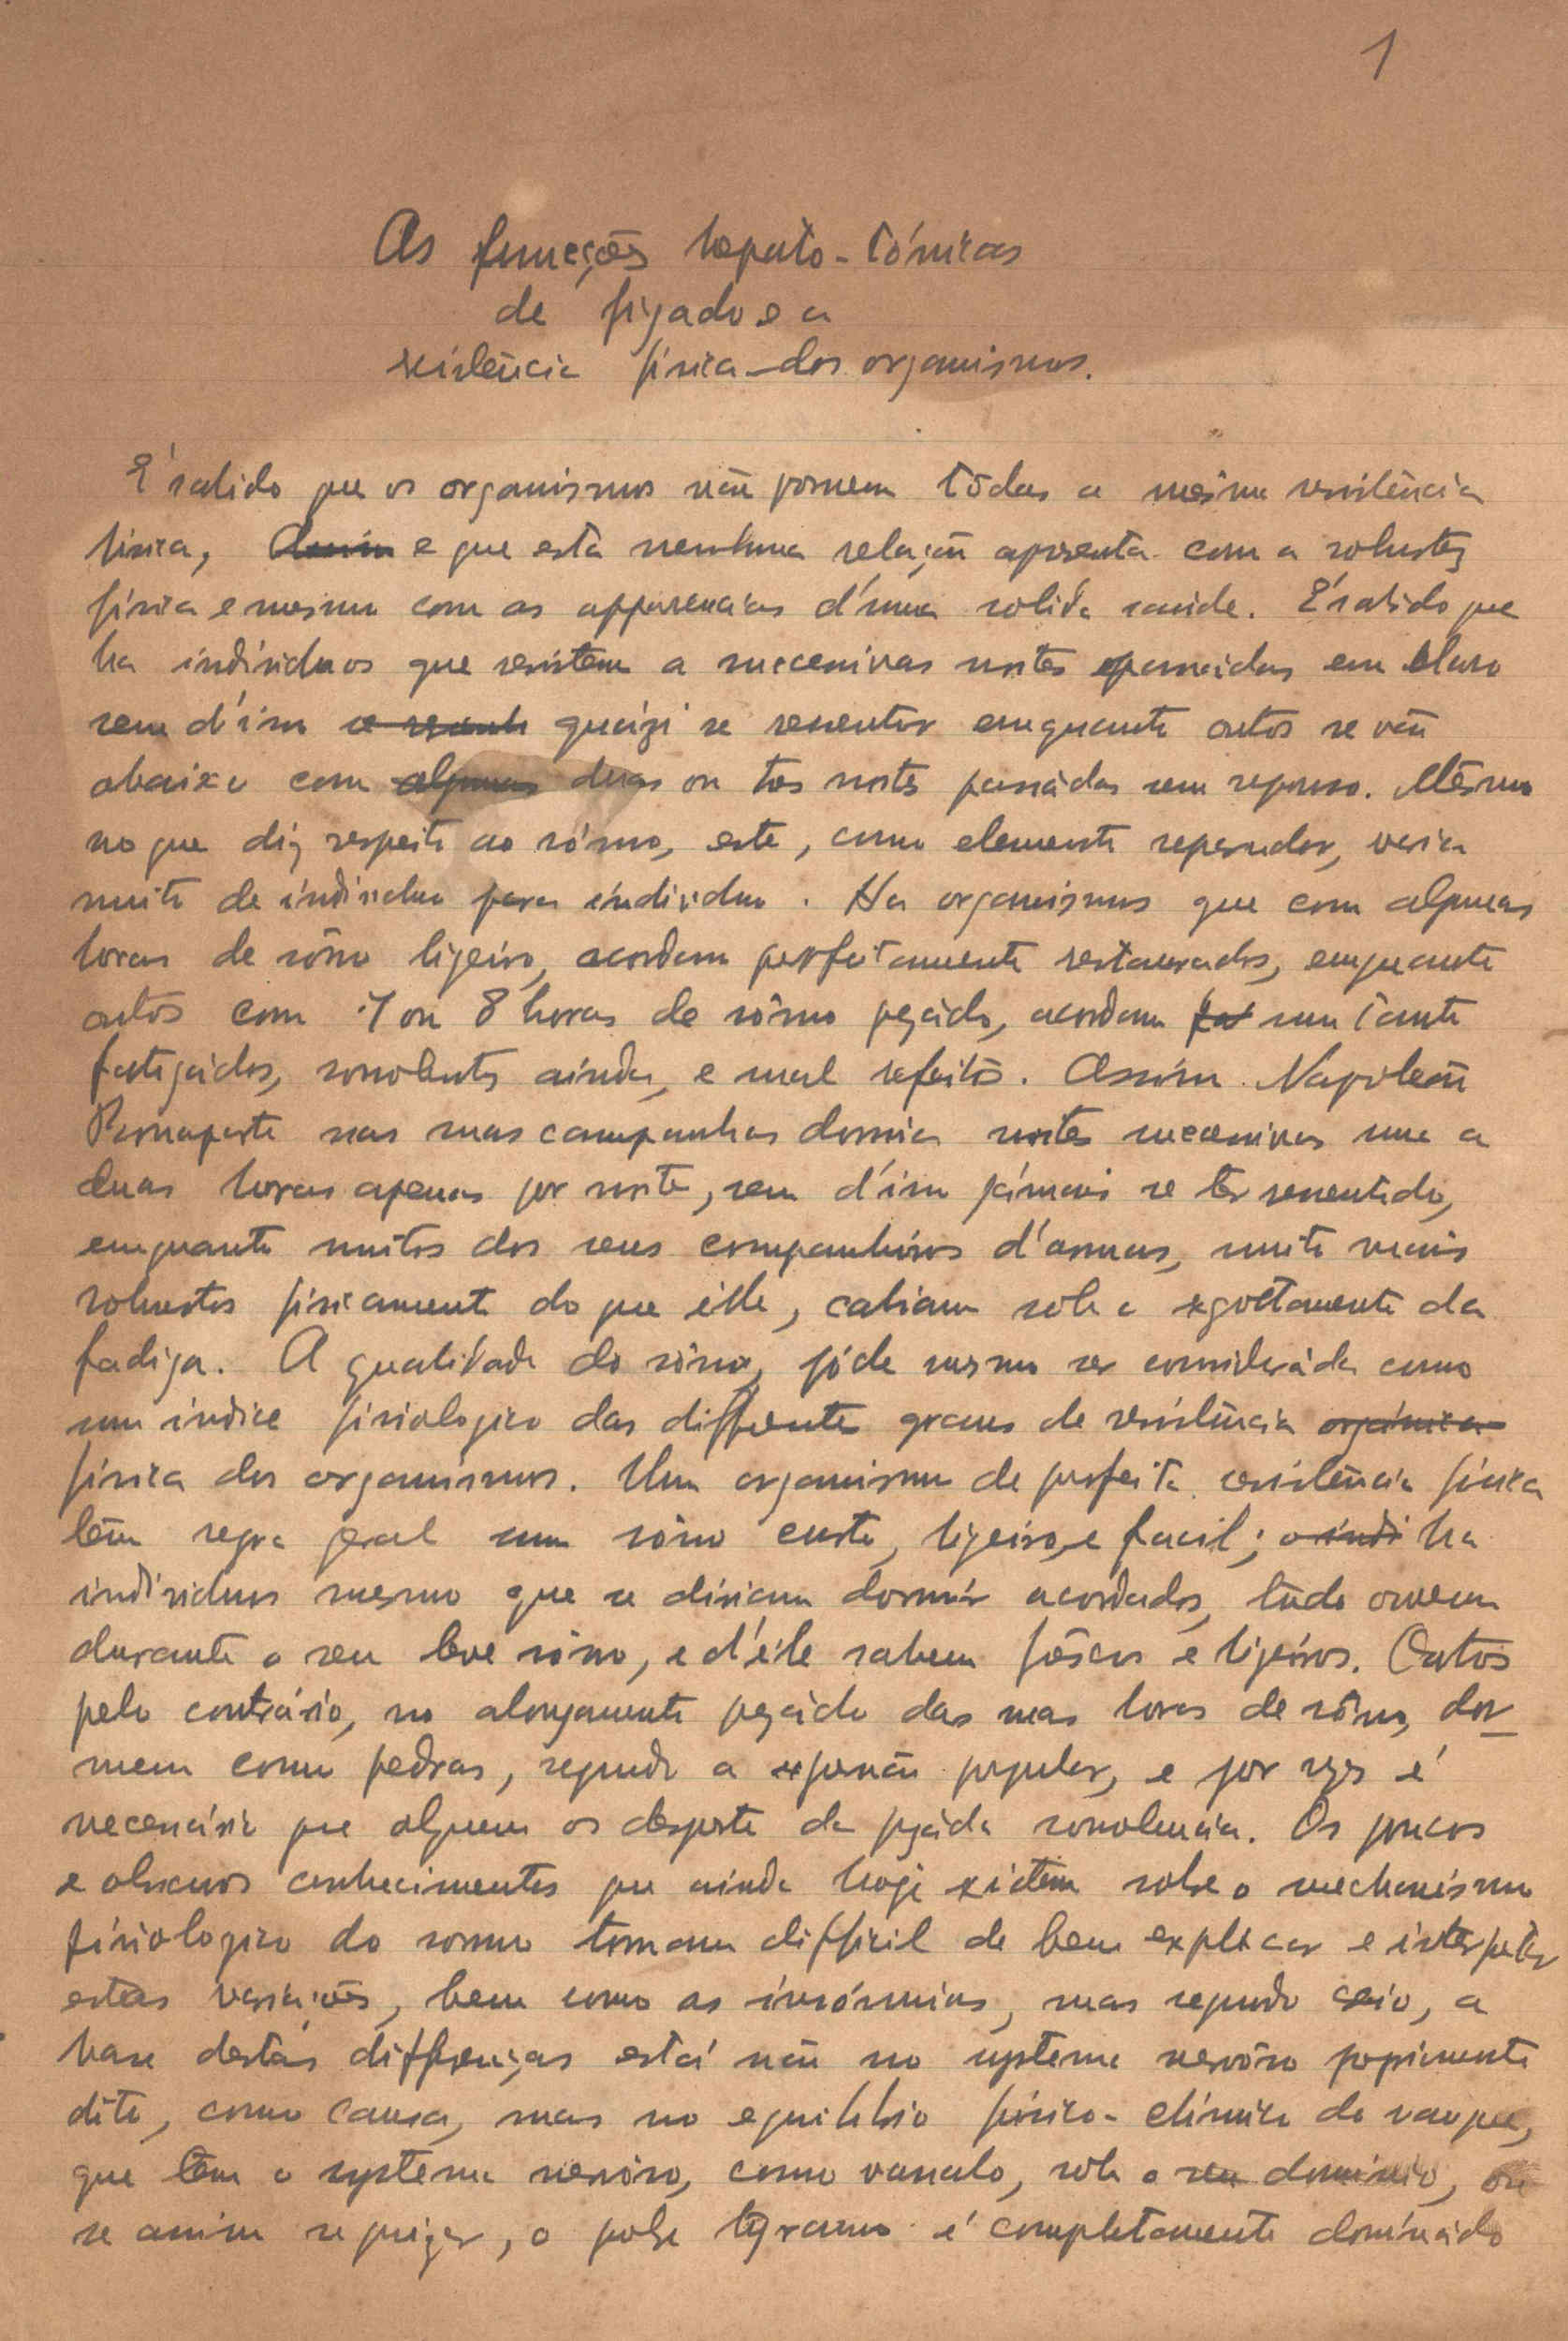 1
As funcções hepato-tónicas
de figado e a
resistência física dos organismos.
E' sabido que os organismos não possuem todos a mesma resistência
física, Assim e que esta nenhuma relação apresenta com a robustez
física e mesmo com as apparencias d'uma solida saude. E' sabido que
ha individuos que resistem a successivas noites passadas em claro
sem d'isso quási se resentir emquanto outros se vão
abaixo com algumas duas ou tres noites passádas sem repouso. Mêsmo
no que diz respeito ao sôno, este, como elemento reparador, varia
muito de individuo para individuo. Ha organismos que com algumas
horas de sôno ligeiro, acordam perfeitamente restaurados, emquanto
outros com 7 ou 8 horas de sôno pezádo, acordam um tanto
fatigádos, sonolentos ainda, e mal refeitos. Assim Napoleão
Bonaparte nas suas campanhas dormia noites successivas uma a
duas horas apenas por noite, sem d'isso jámais se ter resentido,
emquanto muitos dos seus companheiros d'armas, muito mais
robustos fisicamente do que êlle, cahiam sob o exgottamento da
fadiga. A qualidade do sôno, póde mesmo ser consideráda como
um indice fisiologico dos differentes graus de resistência orgánica
física dos organismos. Um organismo de perfeita resistência física
têm regra geral um sôno curto, ligeiro, e facil; o indi ha
individuos mesmo que se diriam dormir acordados, tudo ouvem
durante o seu leve sôno, e d'êle sahem frêscos e ligeiros. Outros
pelo contrário, no alongamento pezádo das suas horas de sôno, dor-
mem como pedras, segundo a expressão popular, e por vezes é
necessário que alguem os desperte da pezáda sonolencia. Os poucos
e obscuros conhecimentos que ainda hoje existem sobre o mechanismo
fisiologico do somno tornam difficil de bem explicar e interpretar
estas variações, bem como as insómnias, mas segundo creio, a
base destas differenças está não no systema nervôso propriamente
dito, como causa, mas no equilibrio físico-chimico do sangue,
que têm o systema nervôso, como vassalo, sob o seu dominio, ou
se assim se quizer, o pobre tyranno é completamente domináda